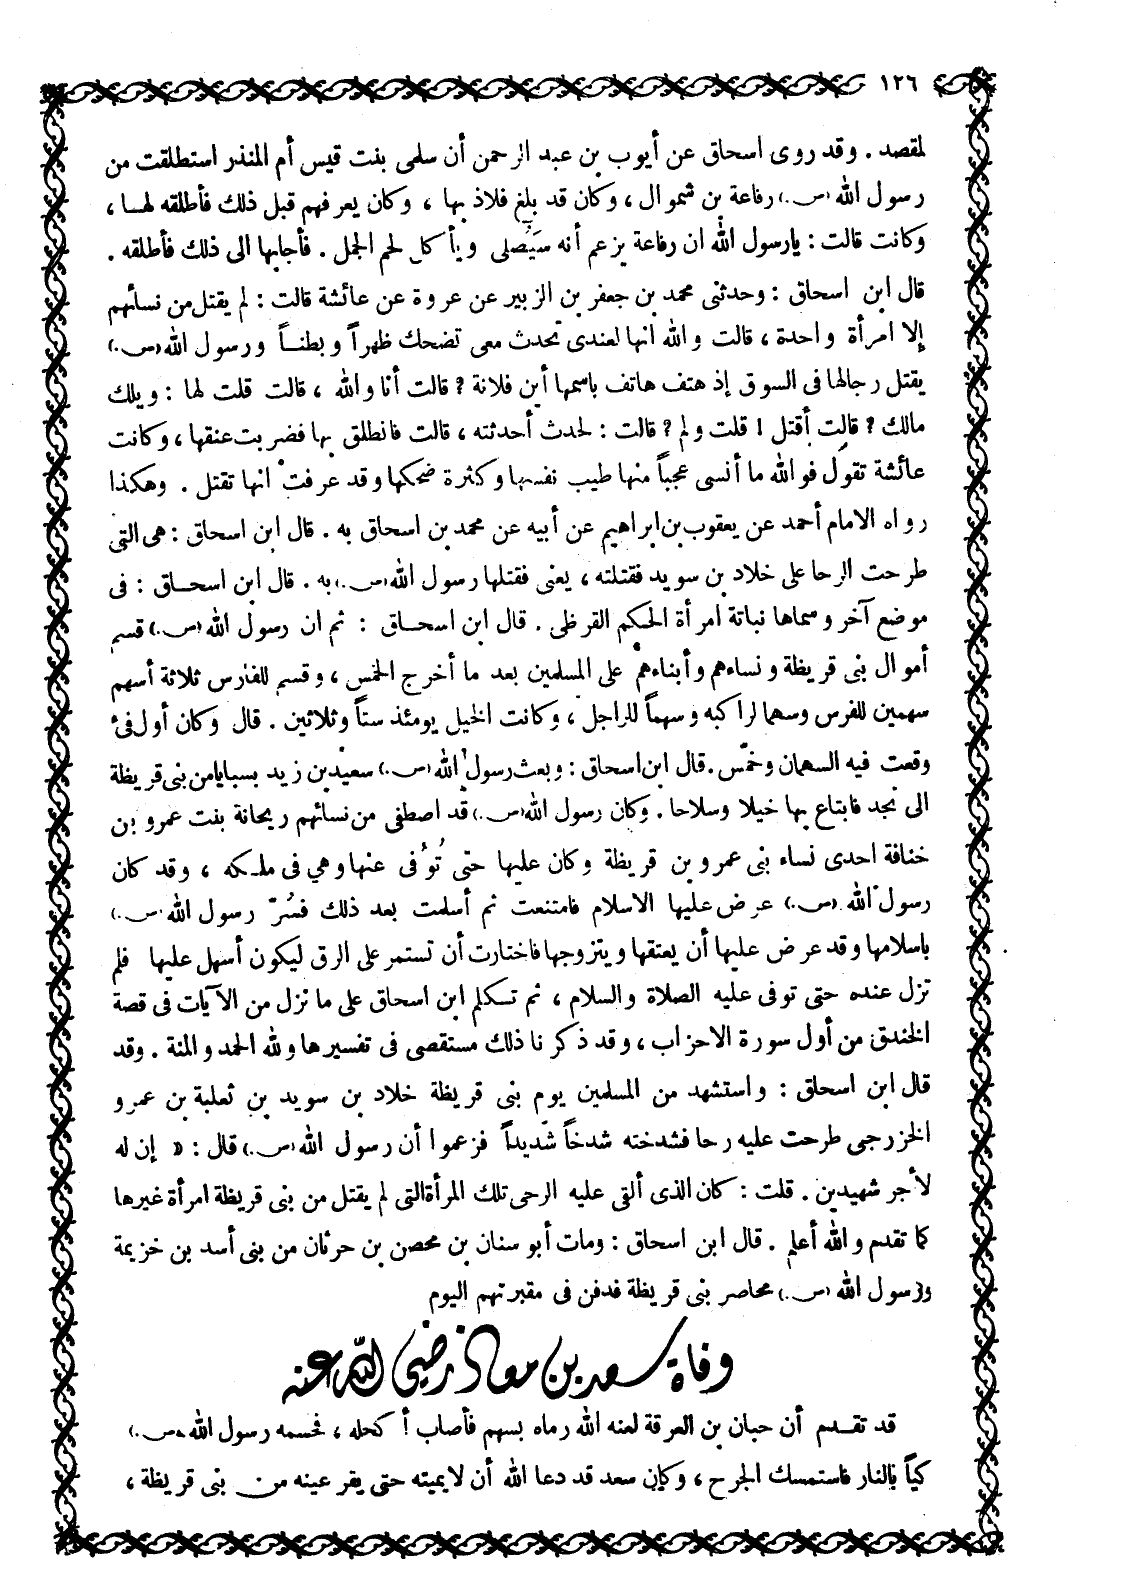 ١٢٦
لمقصد . وقد روى اسحاق عن أيوب بن عبد الرحمن أن سلمى بنت قيس أم المنذر استطلقت من
رسول الله (ص.) رفاعة بن شموال ، وكان قد بلغ فلاذ بها ، وكان يعرفهم قبل ذلك فأطلقه لهـا ،
وكانت قالت : يارسول الله ان رفاعة يزعم أنه سَيُصلى ويأكل لحم الجمل . فأجابها الى ذلك فأطلقه .
قال ابن اسحاق : وحدثنى محمد بن جعفر بن الزبير عن عروة عن عائشة قالت : لم يقتل من نسائهم
إلا امرأة واحدة ، قالت والله انها لعندى تحدث معى تضحك ظهراً وبطنـاً ورسول الله (ص.)
يقتل رجالها فى السوق إذ هتف هاتف باسمها أين فلانة ? قالت أنا والله ، قالت قلت لها : ويلك
مالك ? قالت أقتل ! قلت ولم ? قالت : لحدث أحدثته ، قالت فانطلق بها فضربت عنقها ، وكانت
عائشة تقول فو الله ما أنسى عجباً منها طيب نفسها وكثرة ضحكها وقد عرفت انها تقتل . وهكذا
رواه الامام أحمد عن يعقوب بن ابراهيم عن أبيه عن محمد بن اسحاق به . قال ابن اسحاق : هى التى
طرحت الرحا على خلاد بن سويد فقتلته ، يعنى فقتلها رسول الله (ص.) به . قال ابن اسحـاق : فى
موضع آخر وسماها نباتة امرأة الحكم القرظى . قال ابن اسحـاق : ثم ان رسول الله (ص.) قسم
أموال بنى قريظة ونساءهم وأبناءهم على المسلمين بعد ما أخرج الخمس ، وقسم للفارس ثلاثة أسهم
سهمين للفرس وسهما لراكبه وسهماً للراجل ، وكانت الخيل يومئذ ستاً وثلاثين . قال وكان أول فئ
وقعت فيه السهمان وخمّس . قال ابن اسحاق : وبعث رسول الله (ص.) سعيد بن زيد بسبايا من بنى قريظة
الى نجد فابتاع بها خيلا وسلاحا . وكان رسول الله (ص.) قد اصطفى من نسائهم ريحانة بنت عمرو بن
خنافة احدى نساء بنى عمرو بن قريظة وكان عليها حتى تُوُفى عنها وهي فى ملـكه ، وقد كان
رسول الله (ص.) عرض عليها الاسلام فامتنعت ثم أسلمت بعد ذلك فسُرّ رسول الله (ص.)
باسلامها وقد عرض عليها أن يعتقها ويتزوجها فاختارت أن تستمر على الرق ليكون أسهل عليها فلم
تزل عنده حتى توفى عليه الصلاة والسلام ، ثم تكلم ابن اسحاق على ما نزل من الآيات فى قصة
الخندق من أول سورة الاحزاب ، وقد ذكرنا ذلك مستقصى فى تفسيرها ولله الحمد والمنة . وقد
قال ابن اسحاق : واستشهد من المسلمين يوم بنى قريظة خلاد بن سويد بن ثعلبة بن عمرو
الخزرجى طرحت عليه رحا فشدخته شدخاً شديداً فزعموا أن رسول الله (ص.) قال : « إن له
لأجر شهيدين . قلت : كان الذى ألقى عليه الرحى تلك المرأة التى لم يقتل من بنى قريظة امرأة غيرها
كما تقدم والله أعلم . قال ابن اسحاق : ومات أبو سنان بن محصن بن حرثان من بنى أسد بن خزيمة
ورسول الله (ص.) محاصر بنى قريظة فدفن فى مقبرتهم اليوم
وفاة سعد بن معاذ رضي الله عنه
قد تقـدم أن حبان بن العرقة لعنه الله رماه بسهم فأصاب أكحله ، فحسمه رسول الله (ص.)
كياً بالنار فاستمسك الجرح ، وكان سعد قد دعا الله أن لا يميته حتى يقر عينه من بنى قريظة ،